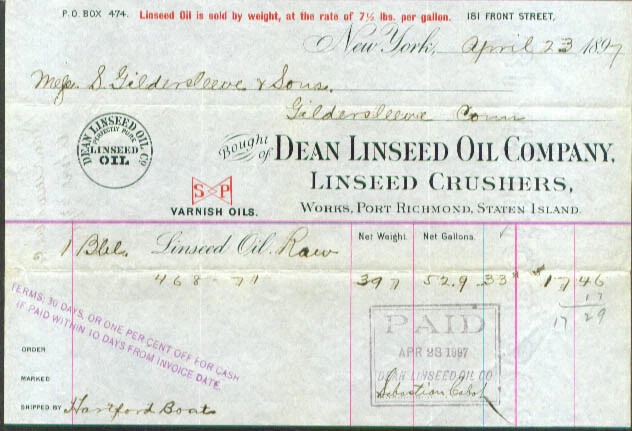 P.O. BOX 474. Linseed Oil is sold by weight, at the rate of 7½ lbs. per gallon. 181 FRONT STREET,
New York, April 23 1897
S Gildersleeve & Sons.
Gildersleeve Conn
DEAN LINSEED OIL CO
PERFECTLY PURE
LINSEED
OIL
Bought of DEAN LINSEED OIL COMPANY,
LINSEED CRUSHERS,
S P
VARNISH OILS.
WORKS, PORT RICHMOND, STATEN ISLAND.
1 Bbl. Linseed Oil. Raw Net Weight. Net Gallons.
468-71 397 52.9 33 $17 46
17
17 29
TERMS; 30 DAYS, OR ONE PER CENT OFF FOR CASH
IF PAID WITHIN 10 DAYS FROM INVOICE DATE.
PAID
APR 23 1897
DEAN LINSEED OIL CO
ORDER
MARKED
SHIPPED BY Hartford Boat